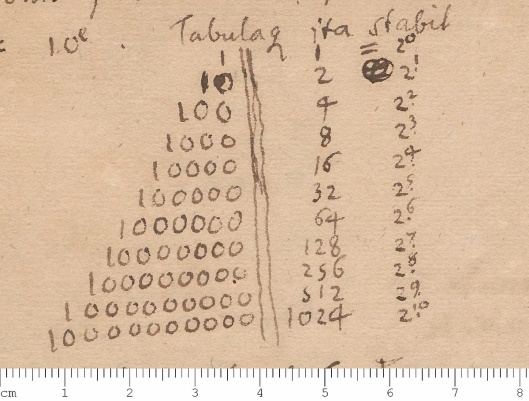 10e . Tabulaq ita stabit
1 1 = 2^0
10 2 2^1
100 4 2^2
1000 8 2^3
10000 16 2^4
100000 32 2^5
1000000 64 2^6
10000000 128 2^7
100000000 256 2^8
1000000000 512 2^9
10000000000 1024 2^10
cm 1 2 3 4 5 6 7 8